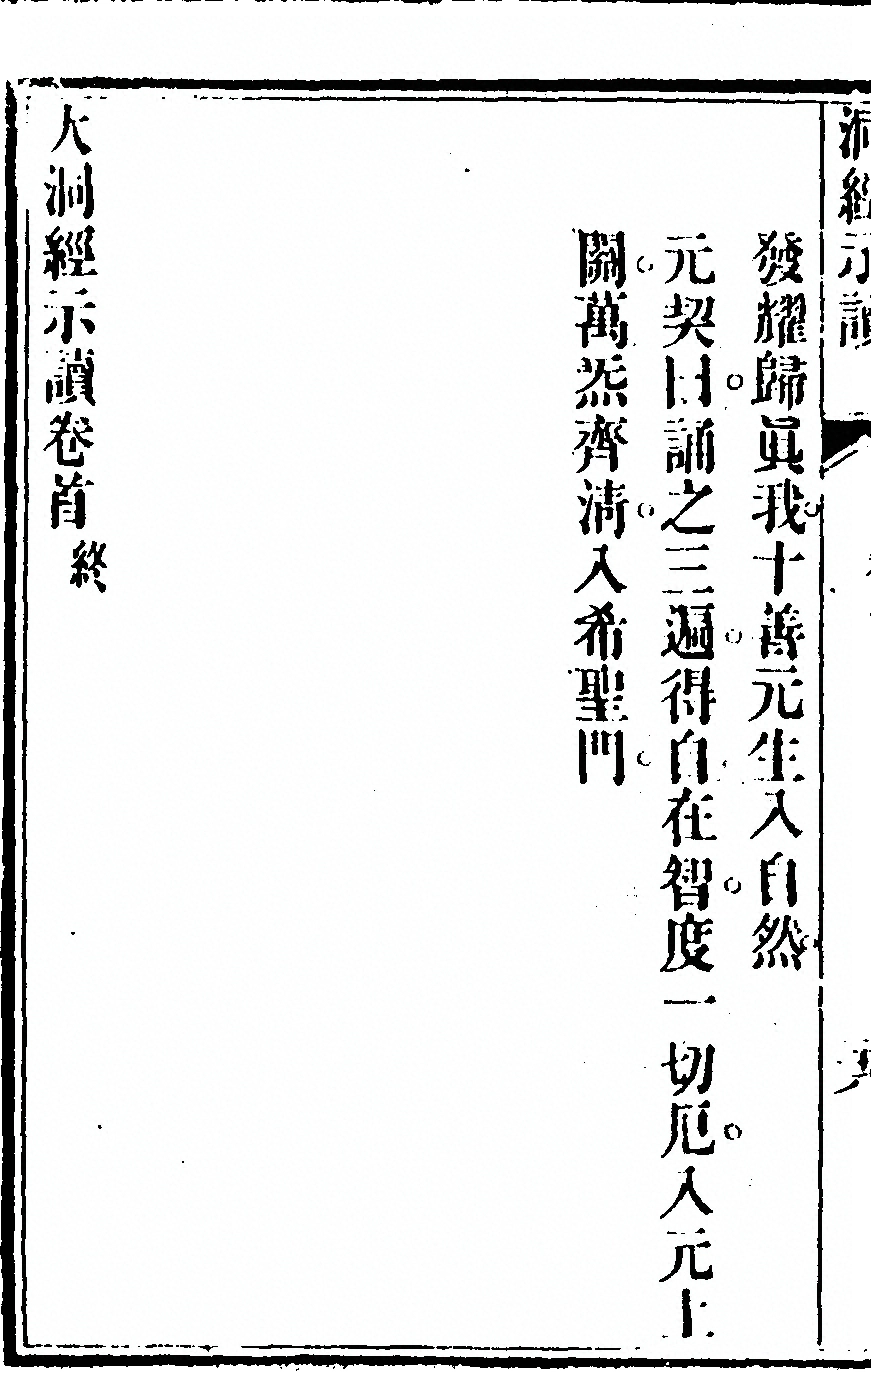 洞經示讀
發耀歸眞我十善元生入自然
元契日誦之三遍得自在智度一切厄入元上
關萬炁齊淸入希聖門
大洞經示讀卷首終